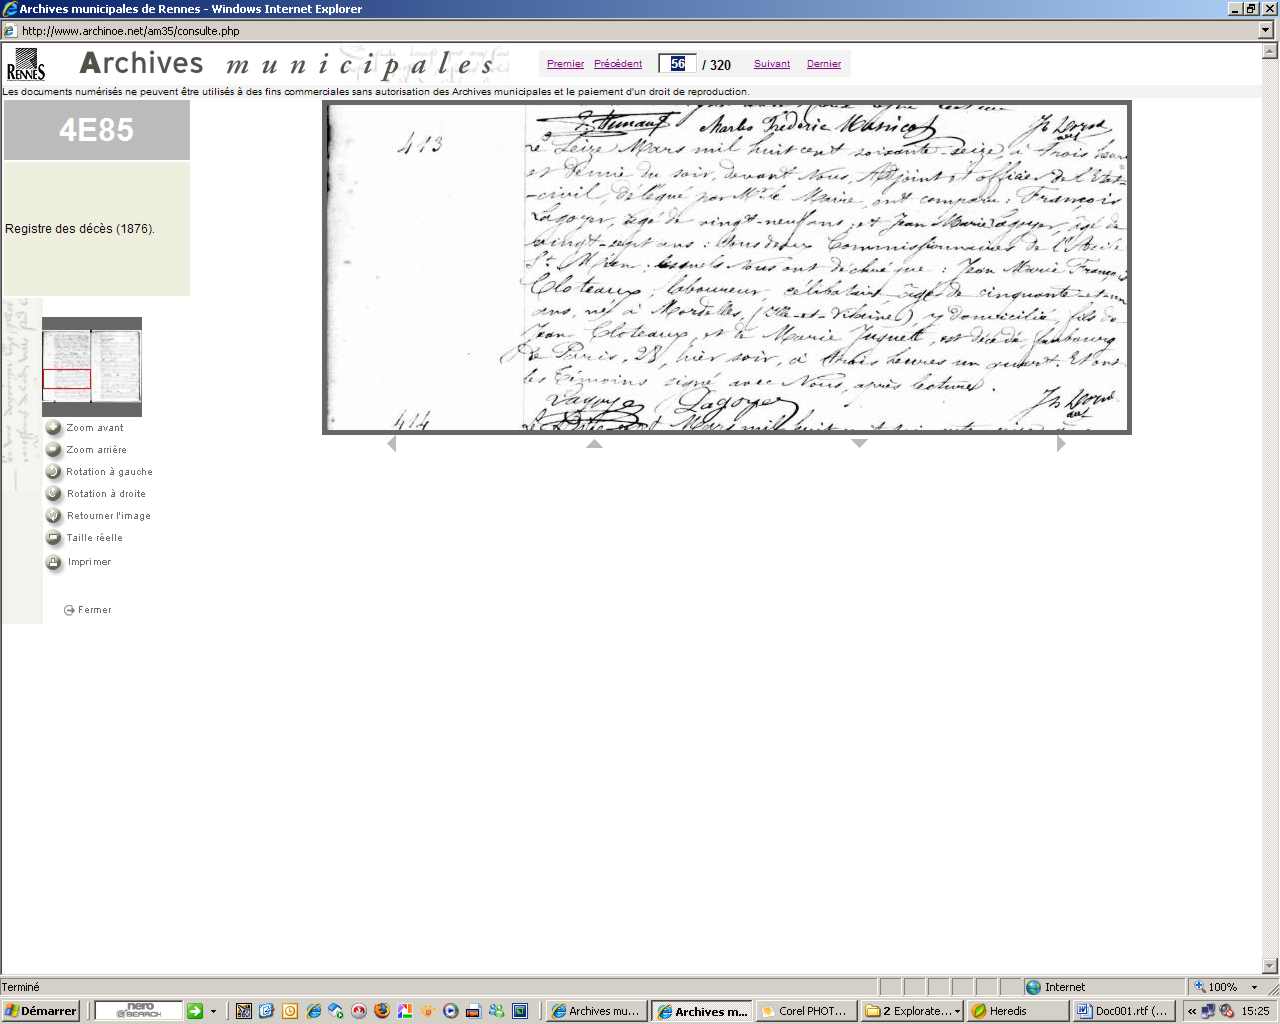 Archives municipales de Rennes - Windows Internet Explorer
http://www.archinoe.net/am35/consulte.php
RENNES
Archives municipales
Premier Précédent 56 / 320 Suivant Dernier
Les documents numérisés ne peuvent être utilisés à des fins commerciales sans autorisation des Archives municipales et le paiement d'un droit de reproduction.
4E85
Registre des décès (1876).
Charles Frédéric
413
Le Seize Mars mil huit cent soixante-seize, à trois heures
et demie du soir, devant Nous, Adjoint et officier de l'Etat-
-civil, délégué par Mr le Maire, ont comparu: François
Lagoyer, âgé de vingt-neuf ans; et Jean Marie Lagoyer, âgé de
vingt-sept ans: tous deux Commissionnaires de l'Asile
St Méen. lesquels Nous ont déclaré que: Jean Marie François
Cloteaux, laboureur, célibataire, âgé de cinquante-et-un
ans, né à Mordelles, (Ille-et-Vilaine) y domicilié, fils de
Jean Cloteaux, et de Marie Jusnel, est décédé faubourg
De Paris, 28, hier soir, à trois heures un quart. Et ont
les témoins signé avec Nous, après lecture.
Lagoyer Lagoyer
414
Mars mil huit cent
Zoom avant
Zoom arrière
Rotation à gauche
Rotation à droite
Retourner l'image
Taille réelle
Imprimer
Fermer
Terminé
Internet
100%
Démarrer
nero
SEARCH
Archives mu...
Archives m...
Corel PHOT...
2 Explorate...
Heredis
Doc001.rtf (...
15:25